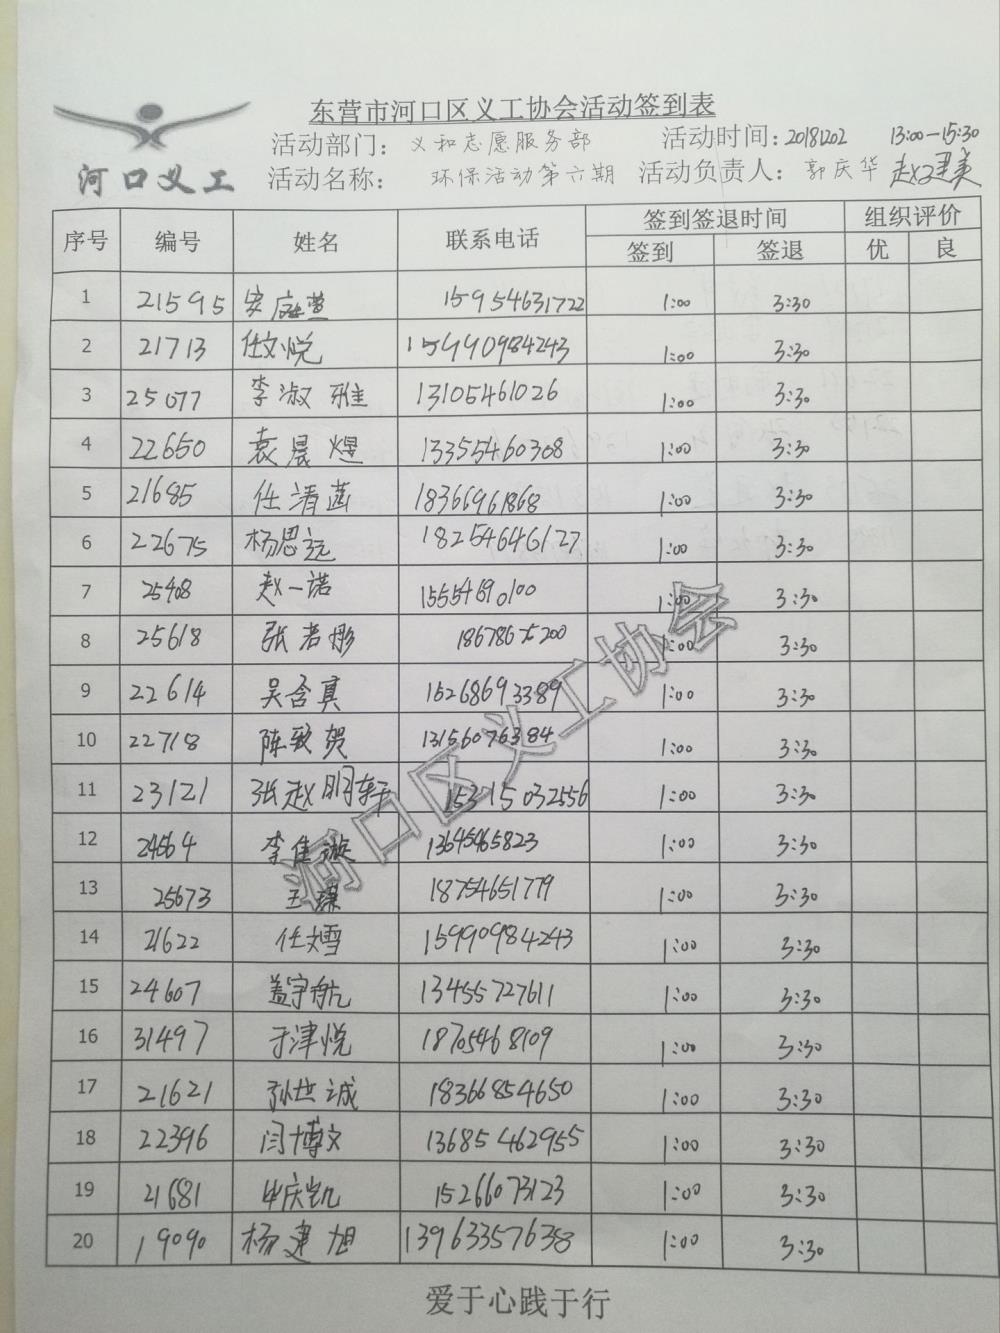 东营市河口区义工协会活动签到表
活动部门: 义和志愿服务部 活动时间: 20181202 13:00-15:30
河口义工
活动名称: 环保活动第六期 活动负责人: 郭庆华 赵翠美
序号 编号 姓名 联系电话 签到签退时间 组织评价
签到 签退 优 良
1 21595 宋庭萱 15954631722 1:00 3:30
2 21713 任文悦 15990984243 1:00 3:30
3 25077 李淑雅 13105461026 1:00 3:30
4 22650 袁晨煜 13355460308 1:00 3:30
5 21685 任清菡 18366961868 1:00 3:30
6 22675 杨思远 18254646127 1:00 3:30
7 25408 赵一诺 1:00 3:30
8 25618 张若彤 18678675200 1:00 3:30
9 22614 吴含真 15268693389 1:00 3:30
10 22718 陈致贺 13156076384 1:00 3:30
11 23121 张赵明轩 15315032556 1:00 3:30
12 24564 李佳璇 13645465823 1:00 3:30
13 25673 王 18754651779 1:00 3:30
14 21622 任文雪 15990984243 1:00 3:30
15 24607 盖宇航 13455727611 1:00 3:30
16 31497 于津悦 18705468109 1:00 3:30
17 21621 孙世诚 18366854650 1:00 3:30
18 22396 闫博文 13685462955 1:00 3:30
19 21681 毕庆凯 15266073123 1:00 3:30
20 19090 杨建旭 139633576358 1:00 3:30
河口区义工协会
爱于心践于行